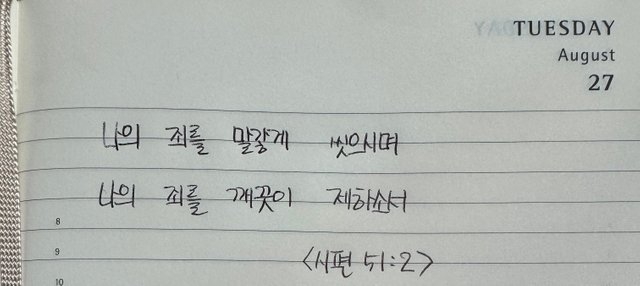 TUESDAY
August
27
나의 죄를 말갛게 씻으시며
나의 죄를 깨끗이 제하소서
8
9
<시편 51:2>
10